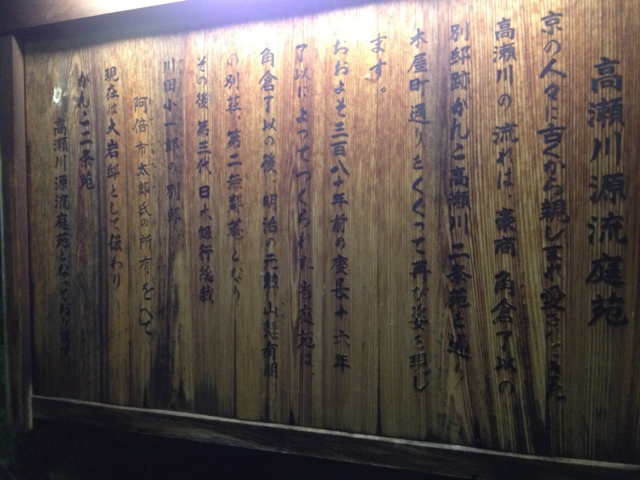 高瀬川源流庭苑
京の人々に古くから親しまれ愛されてきた
高瀬川の流れは、豪商 角倉了以の
別邸跡がんこ高瀬川二条苑を通り
木屋町通りをくぐって再び姿を現し
ます。
おおよそ三百八十年前の慶長十六年
了以によってつくられた当庭苑は、
角倉了以の後、明治の元勲 山縣有朋
の別荘、第二無鄰菴となり
その後 第三代 日本銀行総裁
川田小一郎の別邸
阿倍市太郎氏の所有をへて
現在は大岩邸として伝わり
がんこ二条苑
高瀬川源流庭苑となっております。